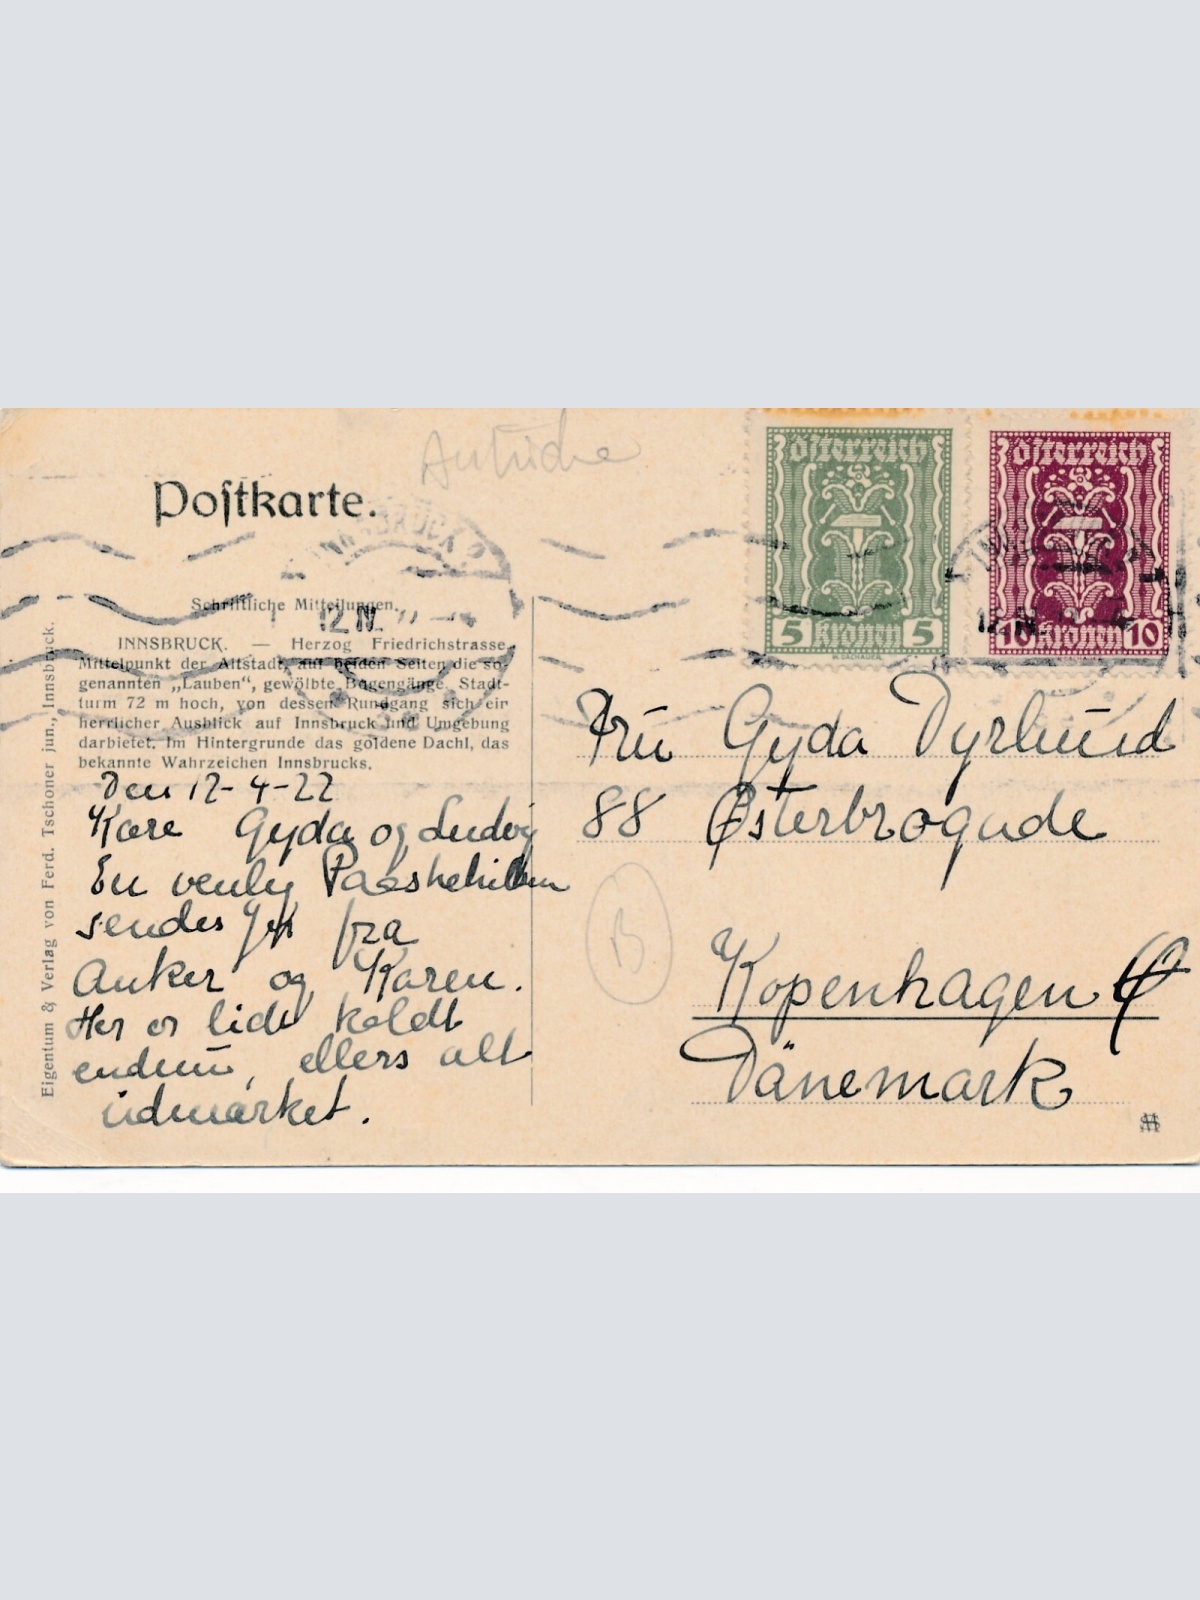 Postkarte.
Österreich
5 kronen 5
Österreich
10 kronen 10
Schriftliche Mitteilungen.
12 IV
INNSBRUCK. — Herzog Friedrichstrasse,
Mittelpunkt der Altstadt, auf beiden Seiten die so-
genannten „Lauben", gewölbte Bogengänge. Stadt-
turm 72 m hoch, von dessen Rundgang sich ein
herrlicher Ausblick auf Innsbruck und Umgebung
darbietet. Im Hintergrunde das goldene Dachl, das
bekannte Wahrzeichen Innsbrucks.
Den 12-4-22
Kære Gyda og Ludvig
En venlig Paaskehilsen
sendes Jer fra
Anker og Karen.
Her er lidt koldt
endnu, ellers alt
udmærket.
Eigentum & Verlag von Ferd. Tschoner jun., Innsbruck.
Fru Gyda Dyrlund
88 Østerbrogade
B
Kopenhagen Ø
Dänemark